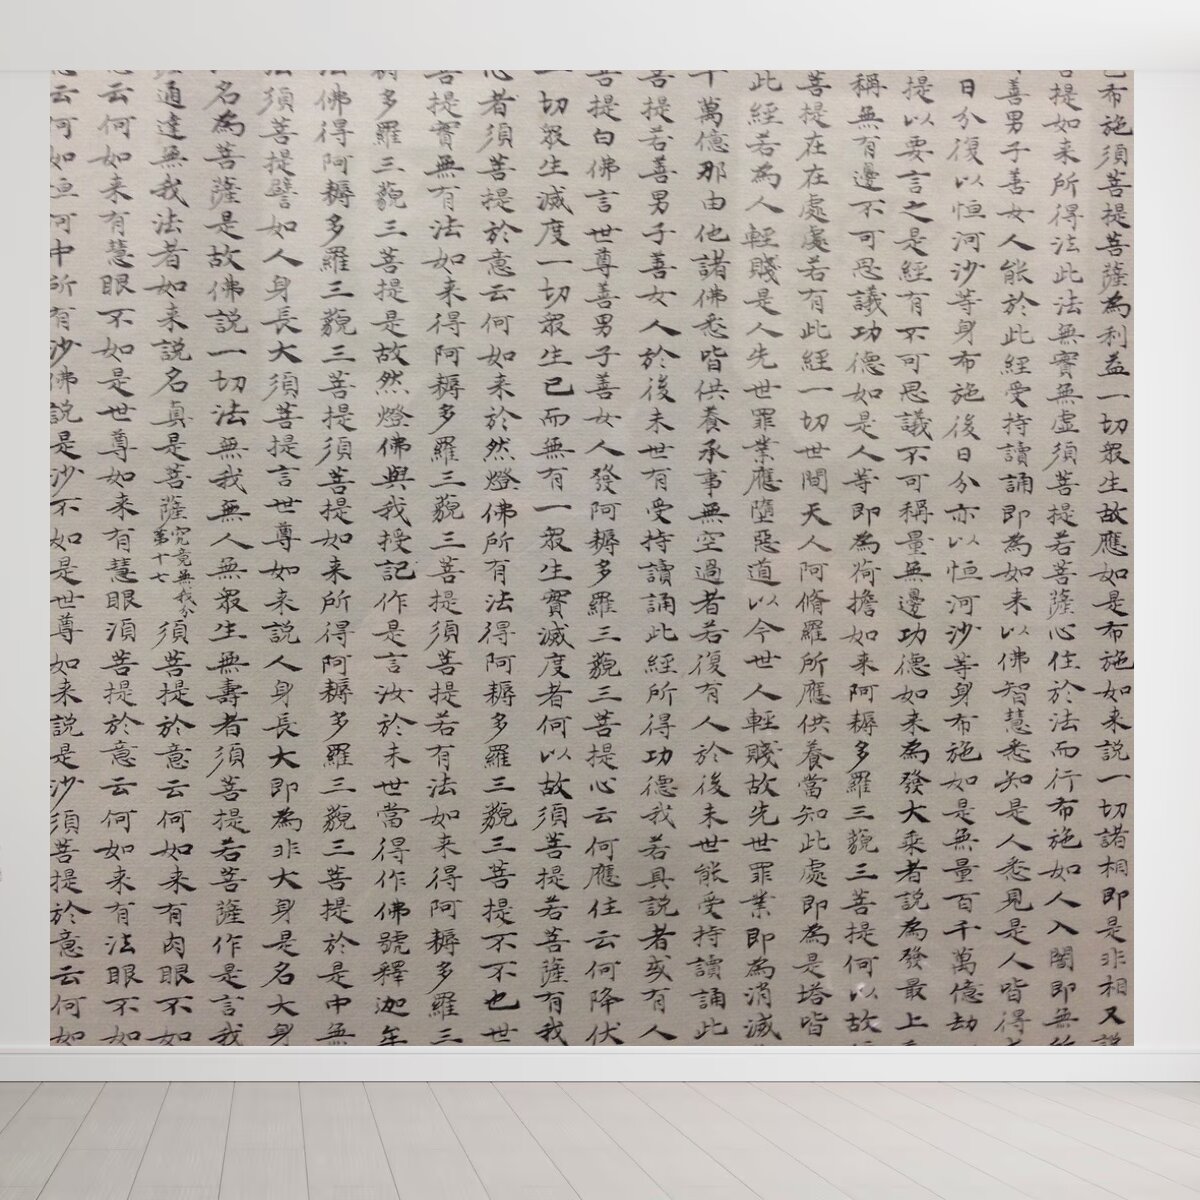 色布施須菩提菩薩為利益一切眾生故應如是布施如来説一切諸相即是非相又説
菩提如来所得法此法無實無虛須菩提若菩薩心住於法而行布施如人入闇即無所
善男子善女人能於此經受持讀誦即為如来以佛智慧悉知是人悉見是人皆得
日分復以恒河沙等身布施後日分亦以恒河沙等身布施如是無量百千萬億劫
提以要言之是經有不可思議不可稱量無邊功德如来為發大乘者説為發最上
稱無有邊不可思議功德如是人等即為荷擔如来阿耨多羅三藐三菩提何以故
菩提在在處處若有此經一切世間天人阿脩羅所應供養當知此處即為是塔皆
此經若為人輕賤是人先世罪業應墮惡道以今世人輕賤故先世罪業即為消滅
千萬億那由他諸佛悉皆供養承事無空過者若復有人於後末世能受持讀誦此
菩提若善男子善女人於後末世有受持讀誦此經所得功德我若具説者或有人
菩提白佛言世尊善男子善女人發阿耨多羅三藐三菩提心云何應住云何降伏
一切眾生滅度一切眾生已而無有一眾生實滅度者何以故須菩提若菩薩有我
者須菩提於意云何如来於然燈佛所有法得阿耨多羅三藐三菩提不不也世
菩提實無有法如来得阿耨多羅三藐三菩提須菩提若有法如来得阿耨多羅三
耨多羅三藐三菩提是故然燈佛與我授記作是言汝於未世當得作佛號釋迦牟
法佛得阿耨多羅三藐三菩提須菩提如来所得阿耨多羅三藐三菩提於是中無
法須菩提譬如人身長大須菩提言世尊如来説人身長大即為非大身是名大身
名為菩薩是故佛説一切法無我無人無眾生無壽者須菩提若菩薩作是言我
通達無我法者如来説名真是菩薩究竟無我分第十七須菩提於意云何如来有肉眼不如
云何如来有慧眼不如是世尊如来有慧眼須菩提於意云何如来有法眼不如
云何如恒河中所有沙佛説是沙不如是世尊如来説是沙須菩提於意云何如